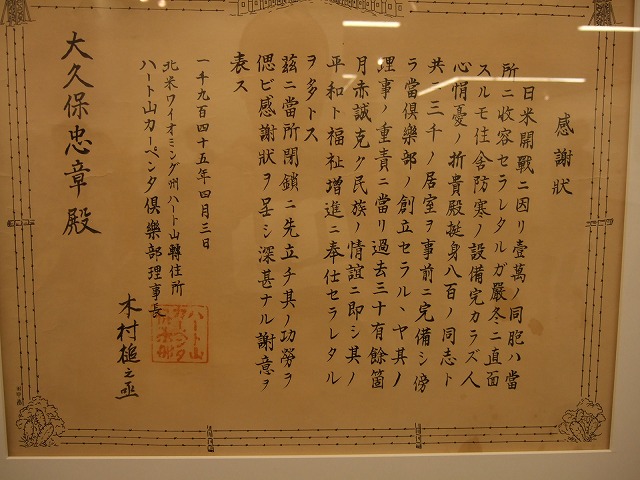 感謝狀
日米開戰ニ因リ壹萬ノ同胞ハ當
所ニ收容セラレタルガ嚴冬ニ直面
スルモ住舍防寒ノ設備完カラズ人
心悄憂ノ折貴殿挺身八百ノ同志ト
共ニ三千ノ居室ヲ事前ニ完備シ傍
ラ當俱樂部ノ創立セラルヽヤ其ノ
理事ノ重責ニ當リ過去三十有餘箇
月赤誠克ク民族ノ情誼ニ卽シ其ノ
平和ト福祉增進ニ奉仕セラレタル
ヲ多トス
茲ニ當所閉鎖ニ先立チ其ノ功勞ヲ
偲ビ感謝狀ヲ呈シ深甚ナル謝意ヲ
表ス
一千九百四十五年四月三日
北米ワイオミング州ハート山轉住所
ハート山カーペンタ俱樂部理事長
木村槌之丞
ハート山
カーペンタ
俱樂部
大久保忠章殿